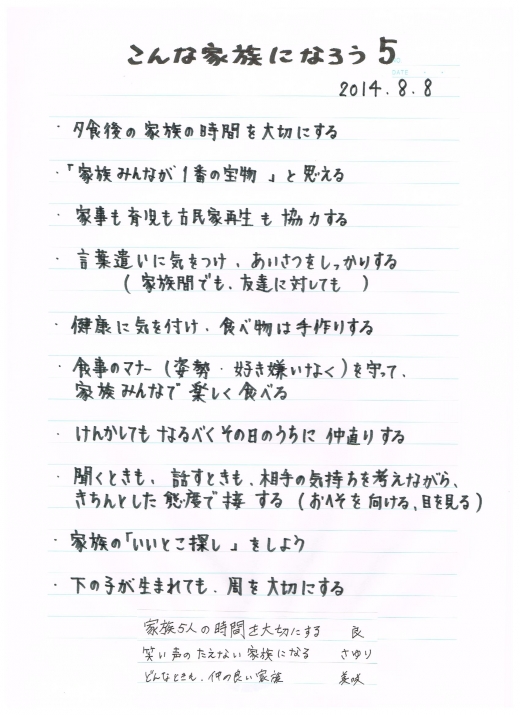 こんな家族になろう 5
DATE
2014.8.8
・夕食後の家族の時間を大切にする
・「家族みんなが1番の宝物」と思える
・家事も育児も古民家再生も協力する
・言葉遣いに気をつけ、あいさつをしっかりする
(家族間でも、友達に対しても )
・健康に気を付け、食べ物は手作りする
・食事のマナー(姿勢・好き嫌いなく)を守って、
家族みんなで楽しく食べる
・けんかしてもなるべくその日のうちに仲直りする
・聞くときも、話すときも、相手の気持ちを考えながら、
きちんとした態度で接する(おへそを向ける、目を見る)
・家族の「いいとこ探し」をしよう
・下の子が生まれても、周を大切にする
家族5人の時間を大切にする 良
笑い声のたえない家族になる さゆり
どんなときも、仲の良い家族 美咲